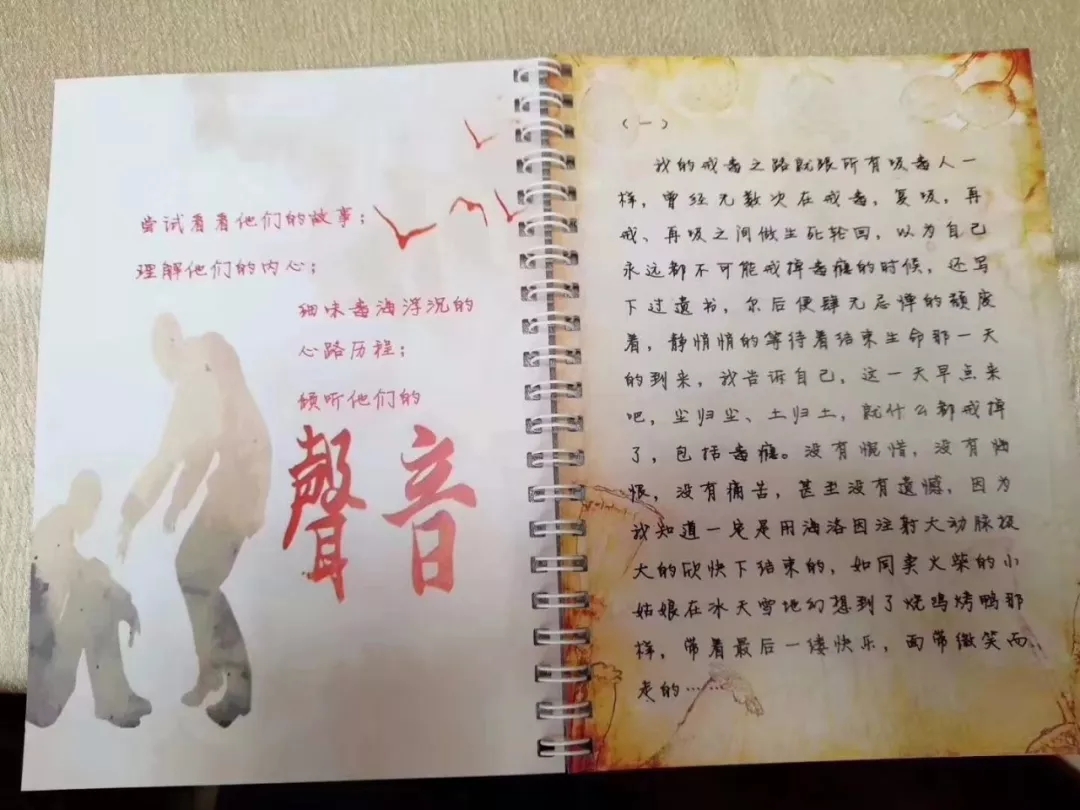 尝试看看他们的故事；
理解他们的内心；
细味毒海浮沉的
心路历程；
倾听他们的
聲音
（一）
我的戒毒之路就跟所有吸毒人一
样，曾经无数次在戒毒，复吸，再
戒、再吸之间做生死轮回，以为自己
永远都不可能戒掉毒瘾的时候，还写
下过遗书，尔后便肆无忌惮的颓废
着，静悄悄的等待着结束生命那一天
的到来，我告诉自己，这一天早点来
吧，尘归尘、土归土，就什么都戒掉
了，包括毒瘾。没有惋惜，没有悔
恨，没有痛苦，甚至没有遗憾，因为
我知道一定是用海洛因注射大动脉极
大的欣快下结束的，如同卖火柴的小
姑娘在冰天雪地幻想到了烧鸡烤鸭那
样，带着最后一缕快乐，面带微笑而
走的……